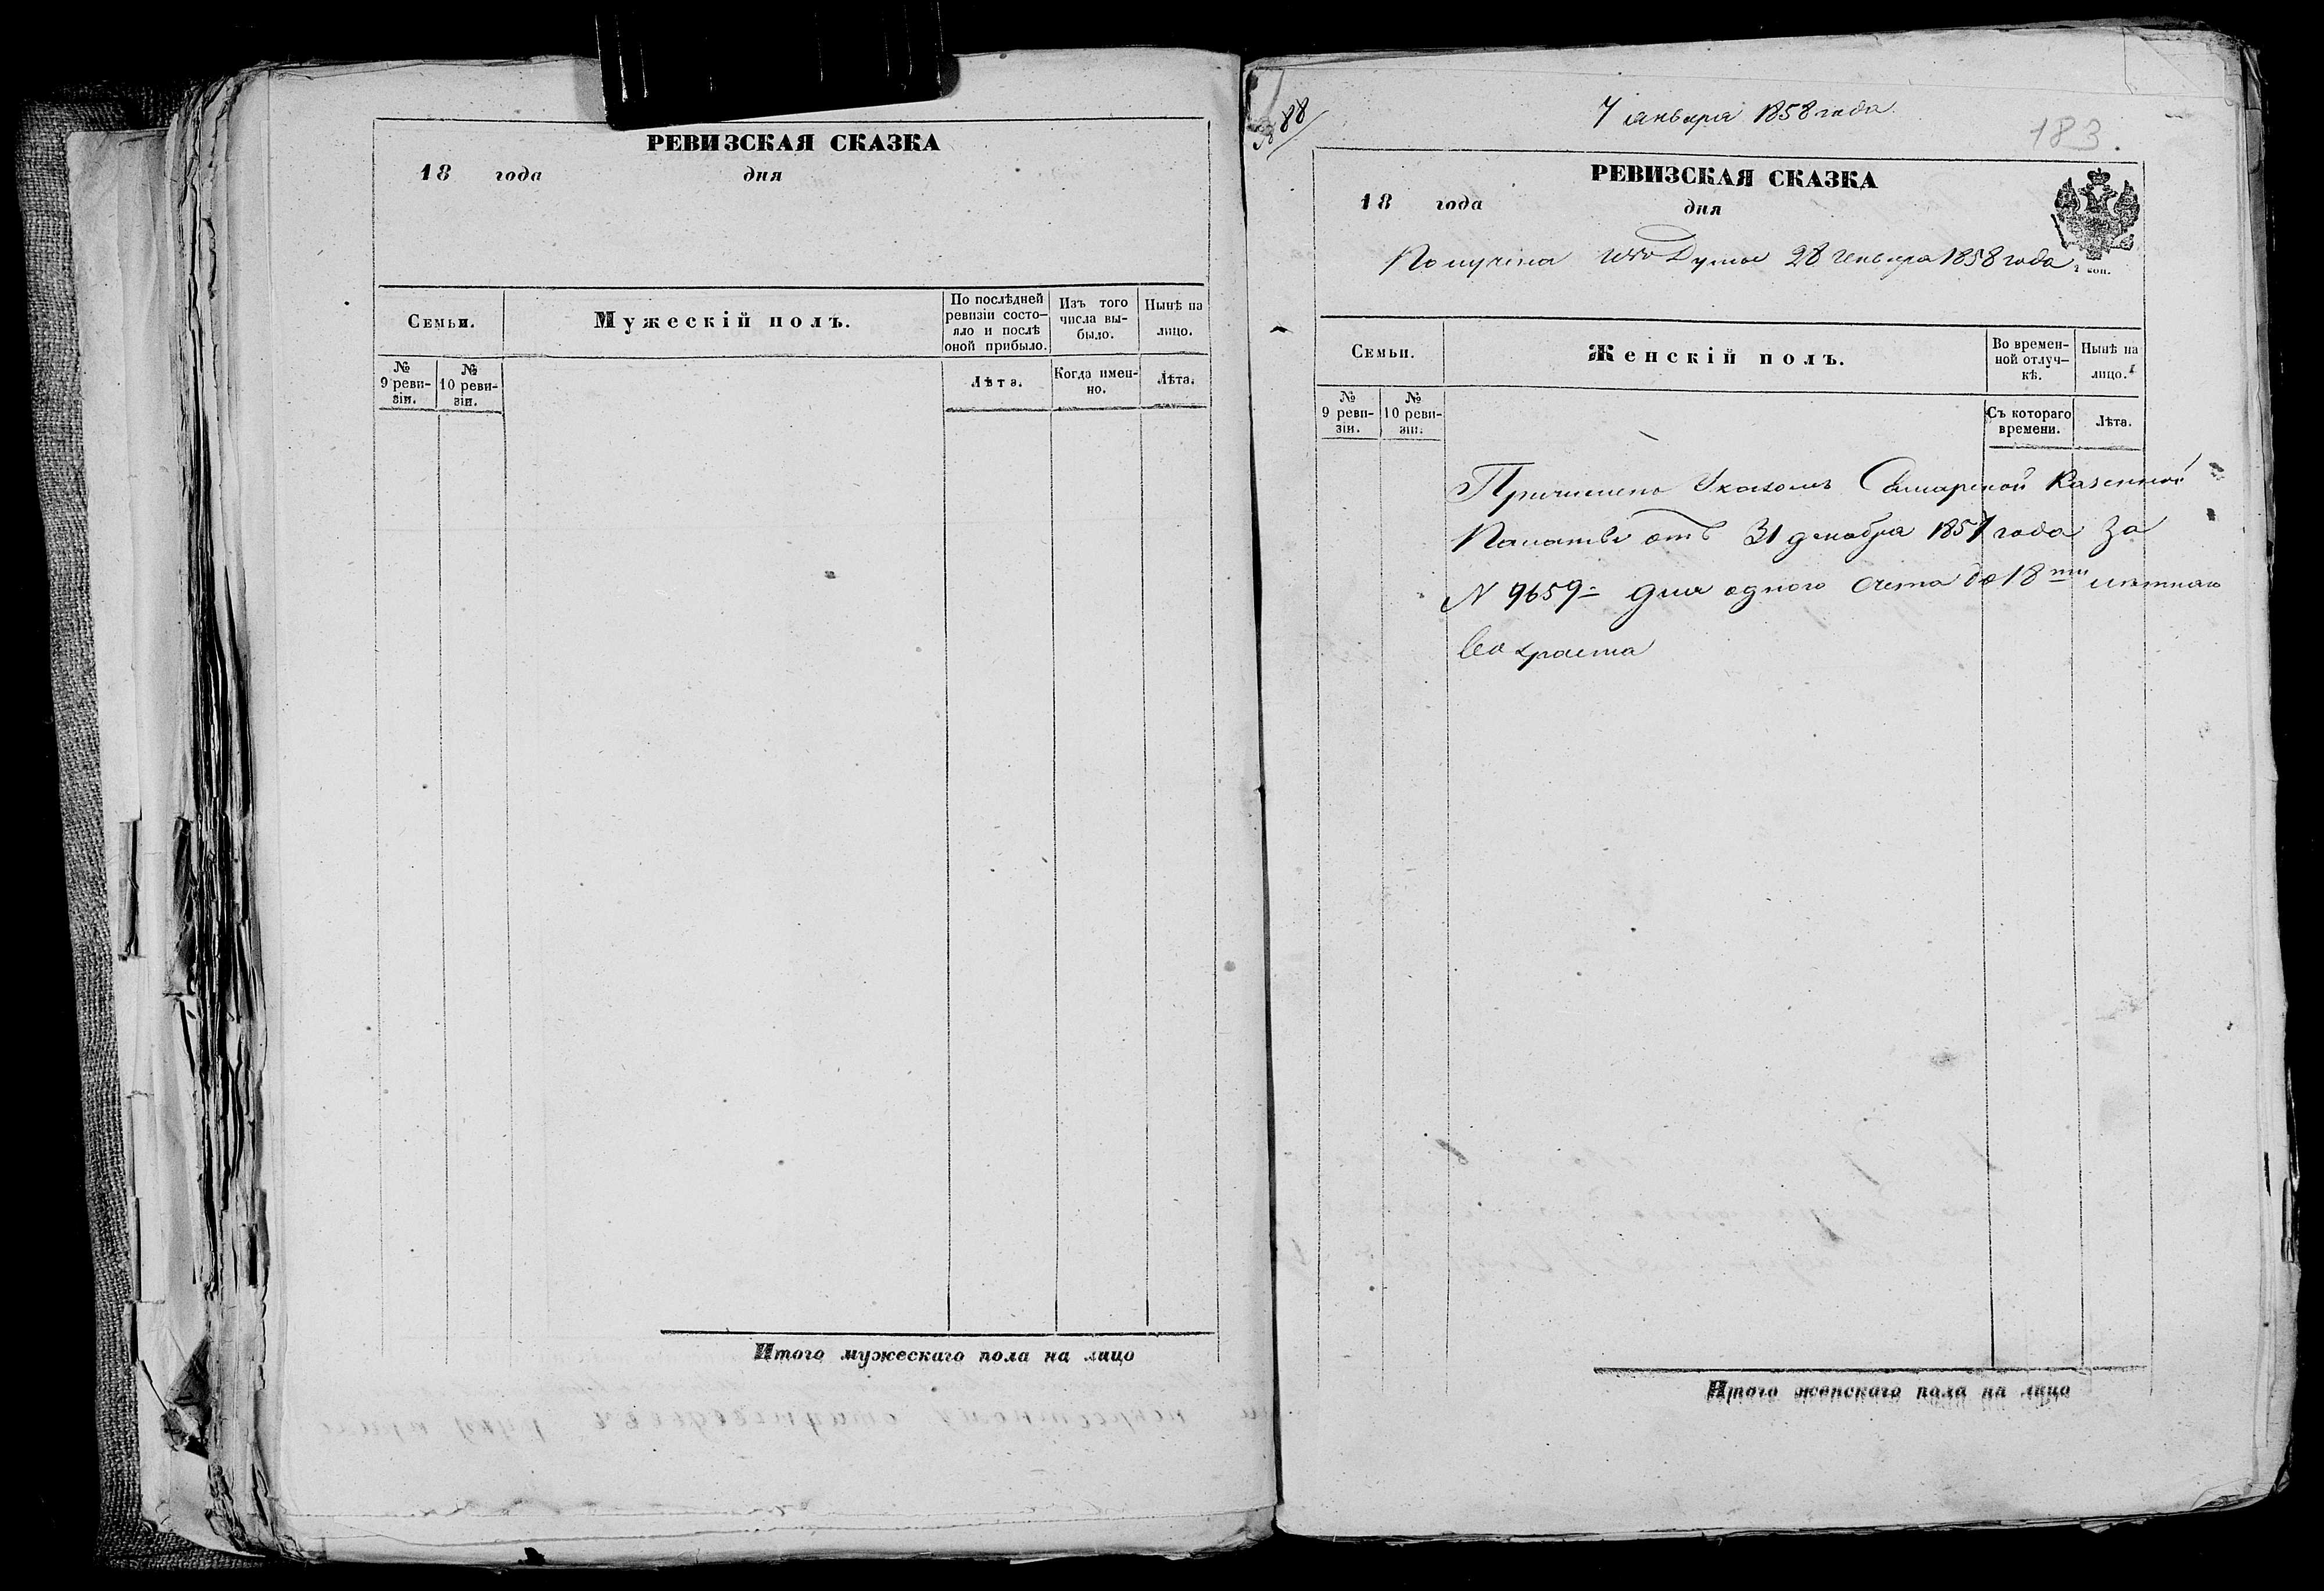 РЕВИЗСКАЯ СКАЗКА
18 года дня
Семьи.
Мужескій полъ.
По послѣдней
ревизіи состо-
яло и послѣ
оной прибыло.
Изъ того
числа вы-
было.
Нынѣ на
лицо.
№
9 реви-
зіи.
№
10 реви-
зіи.
Лѣта.
Когда имен-
но.
Лѣта.
Итого мужескаго пола на лицо
88
7 января 1858 года
183.
РЕВИЗСКАЯ СКАЗКА
18 года дня
Получена Думе 28 Генваря 1858 года
коп.
Семьи.
Женскій полъ.
Во времен-
ной отлуч-
кѣ.
Нынѣ на
лицо.
№
9 реви-
зіи.
№
10 реви-
зіи.
Съ котораго
времени.
Лѣта.
Причислено Указомъ Самарской Казенной
Палаты отъ 31 декабря 1857 года за
N 9659 для одного счета до 18 ти лѣтняго
возраста
Итого женскаго пола на лицо